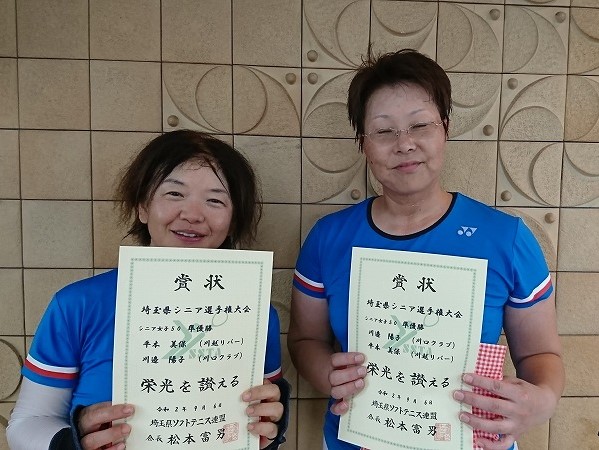 賞状
埼玉県シニア選手権大会
シニア女子50 準優勝
平本 美保 (川越リバー)
川邉 陽子 (川口クラブ)
SSTA
栄光を讃える
令和2年9月6日
埼玉県ソフトテニス連盟
会長 松本富男
YONEX
賞状
埼玉県シニア選手権大会
シニア女子50 準優勝
川邉 陽子 (川口クラブ)
平本 美保 (川越リバー)
SSTA
栄光を讃える
令和2年9月6日
埼玉県ソフトテニス連盟
会長 松本富男